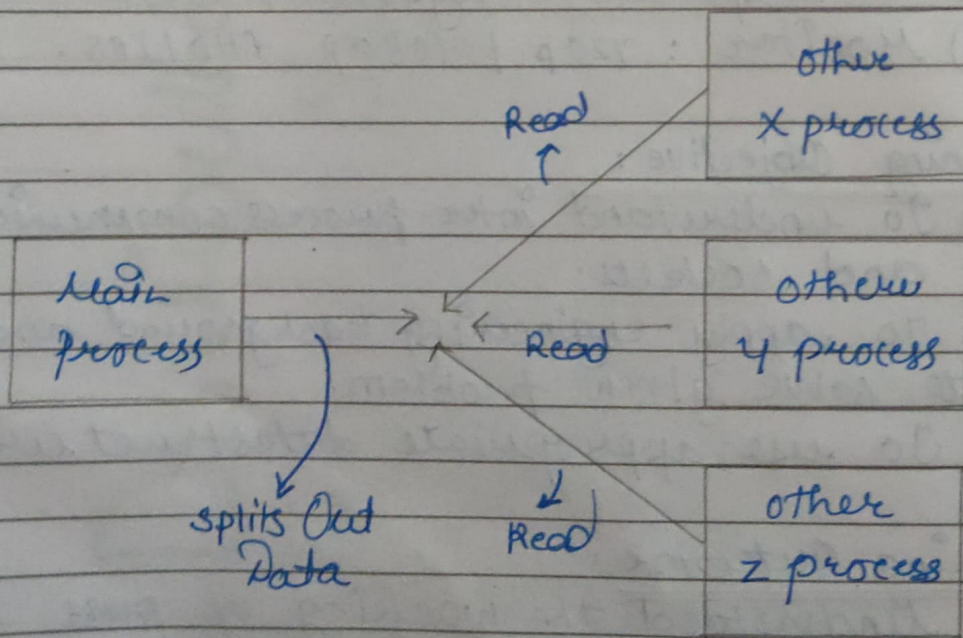 other
X process
Read
Main
process
other
y process
Read
splits Out
Data
Read
other
z process